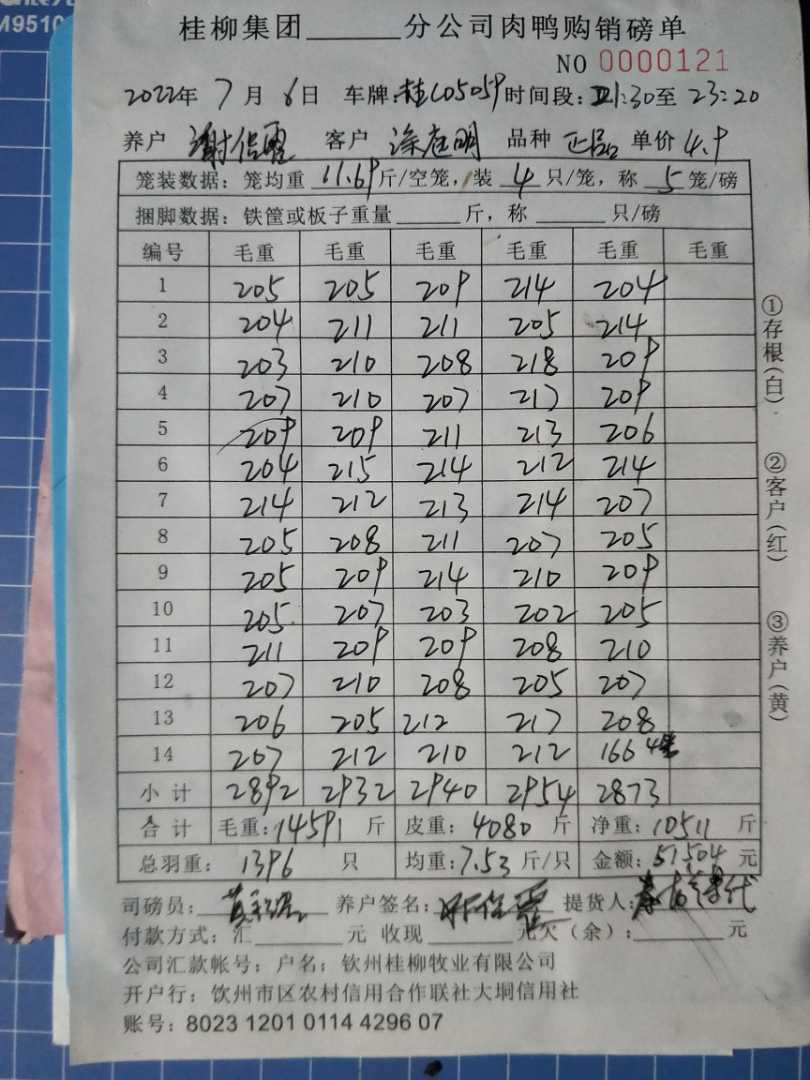 M9510
桂柳集团______分公司肉鸭购销磅单
NO 0000121
2022年 7 月 6 日 车牌:桂C05059 时间段:21:30至 23:20
养户 谢保霞 客户 涂庭明 品种 正品 单价 4.9
笼装数据:笼均重 11.69 斤/空笼,装 4 只/笼,称 5 笼/磅
捆脚数据:铁筐或板子重量______斤,称______只/磅
编号 毛重 毛重 毛重 毛重 毛重 毛重
1 205 205 209 214 204
2 204 211 211 205 214
3 203 210 208 218 209
4 207 210 207 217 209
5 209 209 211 213 206
6 204 215 214 212 214
7 214 212 213 214 207
8 205 208 211 207 205
9 205 209 214 210 209
10 205 207 203 202 205
11 211 209 209 208 210
12 207 210 208 205 207
13 206 205 212 217 208
14 207 212 210 212 166 4笼
小计 2892 2932 2940 2954 2873
合计 毛重:14591 斤 皮重:4080 斤 净重:10511 斤
总羽重: 1396 只 均重:7.53 斤/只 金额:51504 元
司磅员: 养户签名: 提货人:
付款方式:汇______元 收现______元欠(余):______元
公司汇款帐号:户名:钦州桂柳牧业有限公司
开户行:钦州市区农村信用合作联社大垌信用社
账号:8023 1201 0114 4296 07
①存根(白)
②客户(红)
③养户(黄)